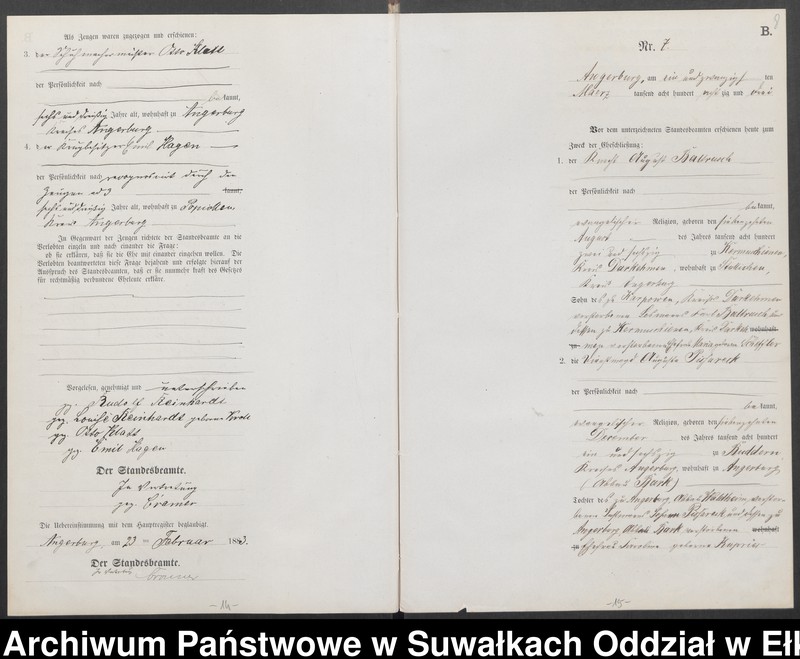 Als Zeugen waren zugezogen und erschienen:
3. der Schuhmachermeister Otto Klatt
der Persönlichkeit nach
bekannt,
sechs und dreißig Jahre alt, wohnhaft zu Angerburg
Kreises Angerburg
4. der Krugbesitzer Emil Hagen
der Persönlichkeit nach recognoscirt durch die
Zeugen ad 3
kannt,
sechs und dreißig Jahre alt, wohnhaft zu
Kreis Angerburg
In Gegenwart der Zeugen richtete der Standesbeamte an die
Verlobten einzeln und nach einander die Frage:
ob sie erklären, daß sie die Ehe mit einander eingehen wollen. Die
Verlobten beantworteten diese Frage bejahend und erfolgte hierauf der
Ausspruch des Standesbeamten, daß er sie nunmehr kraft des Gesetzes
für rechtmäßig verbundene Eheleute erkläre.
Vorgelesen, genehmigt und unterschrieben
gez. Rudolf Steinhardt
gez. Louise Steinhardt geborene
gez. Otto Klatt
gez. Emil Hagen
Der Standesbeamte.
In Vertretung
gez. Cramer
Die Uebereinstimmung mit dem Hauptregister beglaubigt.
Angerburg, am 23 ten Februar 1883.
Der Standesbeamte.
Cramer
-14-
9
B.
Nr. 7
Angerburg, am ein und zwanzigsten
Maerz tausend acht hundert achtzig und drei
Vor dem unterzeichneten Standesbeamten erschienen heute zum
Zweck der Eheschließung:
1. der Knecht August Baltrusch
der Persönlichkeit nach
bekannt,
evangelischer Religion, geboren den siebenzehnten
August des Jahres tausend acht hundert
zwei und sechszig zu
Kreis Darkehmen, wohnhaft zu
Kreis Angerburg
Sohn des zu Karpowen, Kreises Darkehmen
verstorbenen Karl Baltrusch und
dessen zu Kreis wohnhaft
zu verstorbenen Ehefrau Maria geborenen
2. die Viehmagd Auguste
der Persönlichkeit nach
bekannt,
evangelischer Religion, geboren den siebenzehnten
December des Jahres tausend acht hundert
ein und sechszig zu Buddern
Kreises Angerburg, wohnhaft zu Angerburg
(Abbau Bark)
Tochter des zu Angerburg, Abbau Waldheim, verstor-
benen Johann und dessen zu
Angerburg Abbau Bark, verstorbenen wohnhaft
zu Ehefrau Karoline geborene
-15-
Archiwum Państwowe w Suwałkach Oddział w Ełk